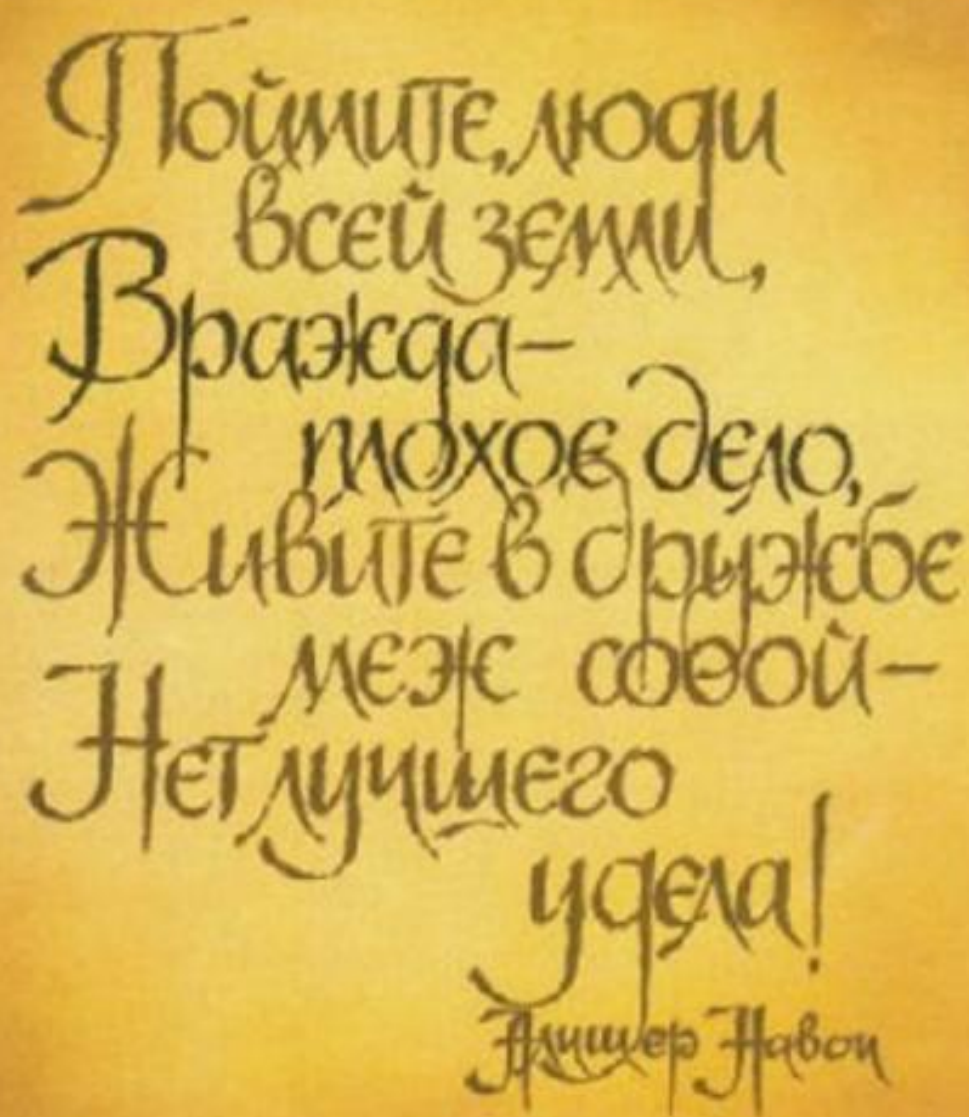 Поймите, люди
всей земли,
Вражда-
плохое дело,
Живите в дружбе
меж собой-
Нет лучшего
удела!
Алишер Навои